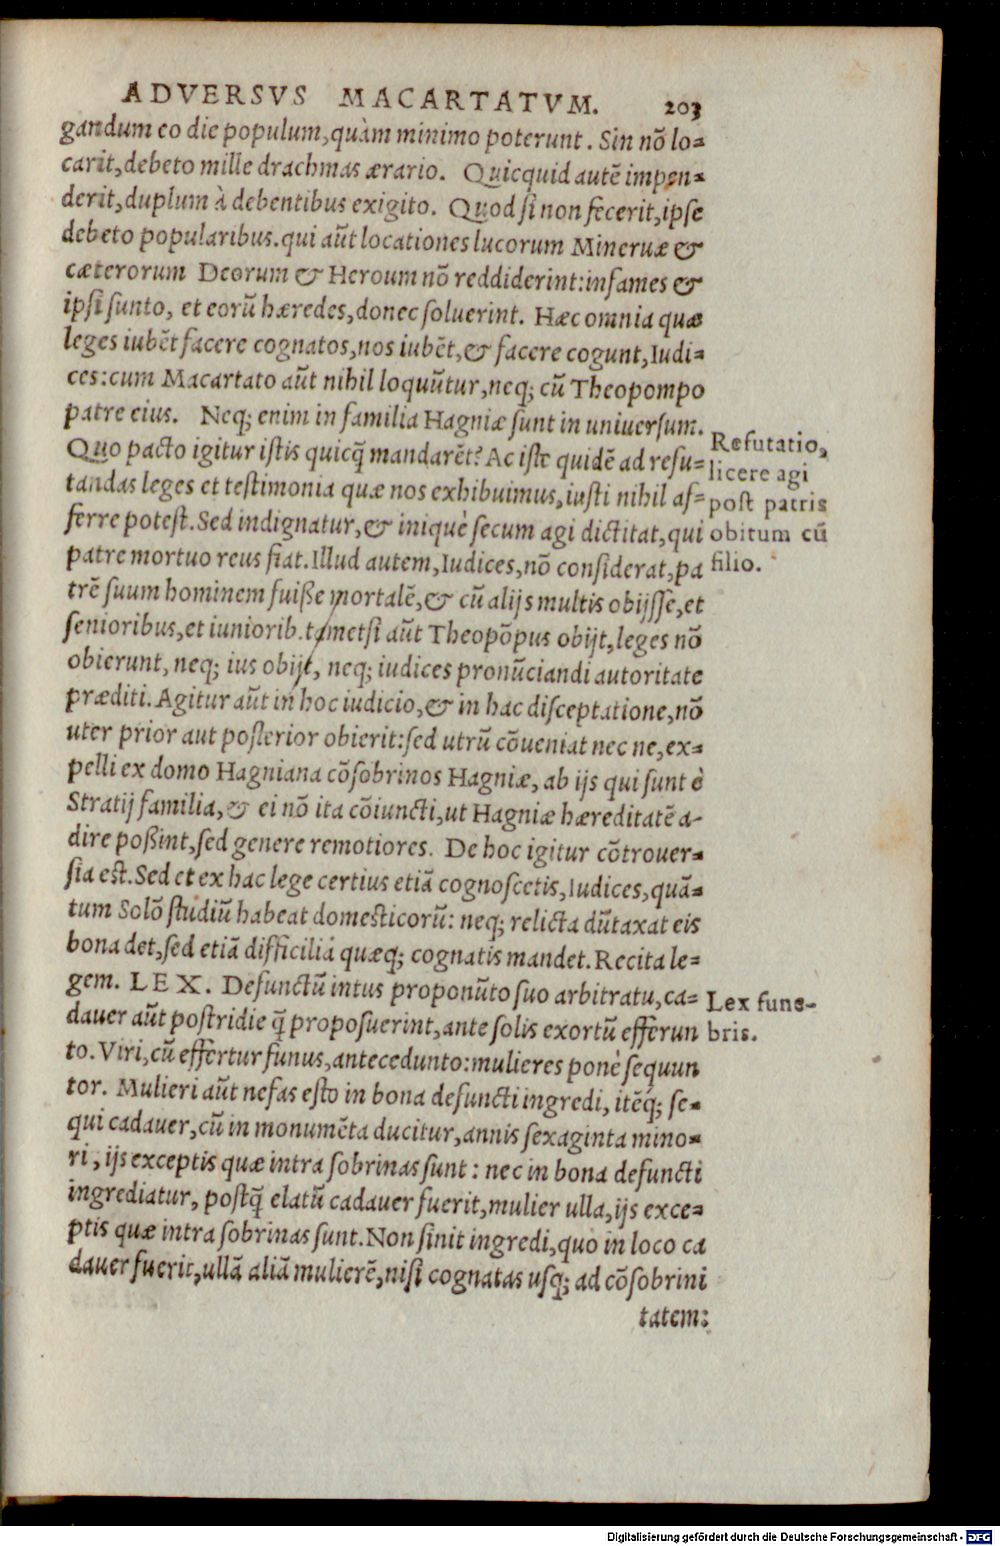 ADVERSVS MACARTATVM. 203
gandum eo die populum, quàm minimo poterunt. Sin nõ lo-
carit, debeto mille drachmas ærario. Quicquid autẽ impen-
derit, duplum à debentibus exigito. Quod ſi non fecerit, ipſe
debeto popularibus. qui aũt locationes lucorum Mineruæ &
cæterorum Deorum & Heroum nõ reddiderint: infames &
ipſi ſunto, et eorũ hæredes, donec ſoluerint. Hæc omnia quæ
leges iubẽt facere cognatos, nos iubẽt, & facere cogunt, Iudi-
ces: cum Macartato aũt nihil loquũtur, neq; cũ Theopompo
patre eius. Neq; enim in familia Hagniæ ſunt in uniuerſum.
Quo pacto igitur iſtis quicq̃ mandarẽt? Ac iſte quidẽ ad refu-
tandas leges et teſtimonia quæ nos exhibuimus, iuſti nihil af-
ferre poteſt. Sed indignatur, & iniquè ſecum agi dictitat, qui
patre mortuo reus fiat. Illud autem, Iudices, nõ conſiderat, pa
trẽ ſuum hominem fuiße mortalẽ, & cũ alijs multis obijſſe, et
ſenioribus, et iuniorib. tametſi aũt Theopõpus obijt, leges nõ
obierunt, neq; ius obijt, neq; iudices pronũciandi autoritate
præditi. Agitur aũt in hoc iudicio, & in hac diſceptatione, nõ
uter prior aut poſterior obierit: ſed utrũ cõueniat nec ne, ex-
pelli ex domo Hagniana cõſobrinos Hagniæ, ab ijs qui ſunt è
Stratij familia, & ei nõ ita cõiuncti, ut Hagniæ hæreditatẽ a-
dire poßint, ſed genere remotiores. De hoc igitur cõtrouer-
ſia eſt. Sed et ex hac lege certius etiã cognoſcetis, Iudices, quã-
tum Solõ ſtudiũ habeat domeſticorũ: neq; relicta dũtaxat eis
bona det, ſed etiã difficilia quæq; cognatis mandet. Recita le-
gem. LEX. Defunctũ intus proponũto ſuo arbitratu, ca-
dauer aũt poſtridie q̃ propoſuerint, ante ſolis exortũ efferun
to. Viri, cũ effertur funus, antecedunto: mulieres ponè ſequun
tor. Mulieri aũt nefas eſto in bona defuncti ingredi, itẽq; ſe-
qui cadauer, cũ in monumẽta ducitur, annis ſexaginta mino-
ri, ijs exceptis quæ intra ſobrinas ſunt: nec in bona defuncti
ingrediatur, poſtq̃ elatũ cadauer fuerit, mulier ulla, ijs exce-
ptis quæ intra ſobrinas ſunt. Non ſinit ingredi, quo in loco ca
dauer fuerit, ullã aliã mulierẽ, niſi cognatas uſq; ad cõſobrini
tatem:
Refutatio,
licere agi
poſt patris
obitum cũ
filio.
Lex fune-
bris.
Digitalisierung gefördert durch die Deutsche Forschungsgemeinschaft - DFG